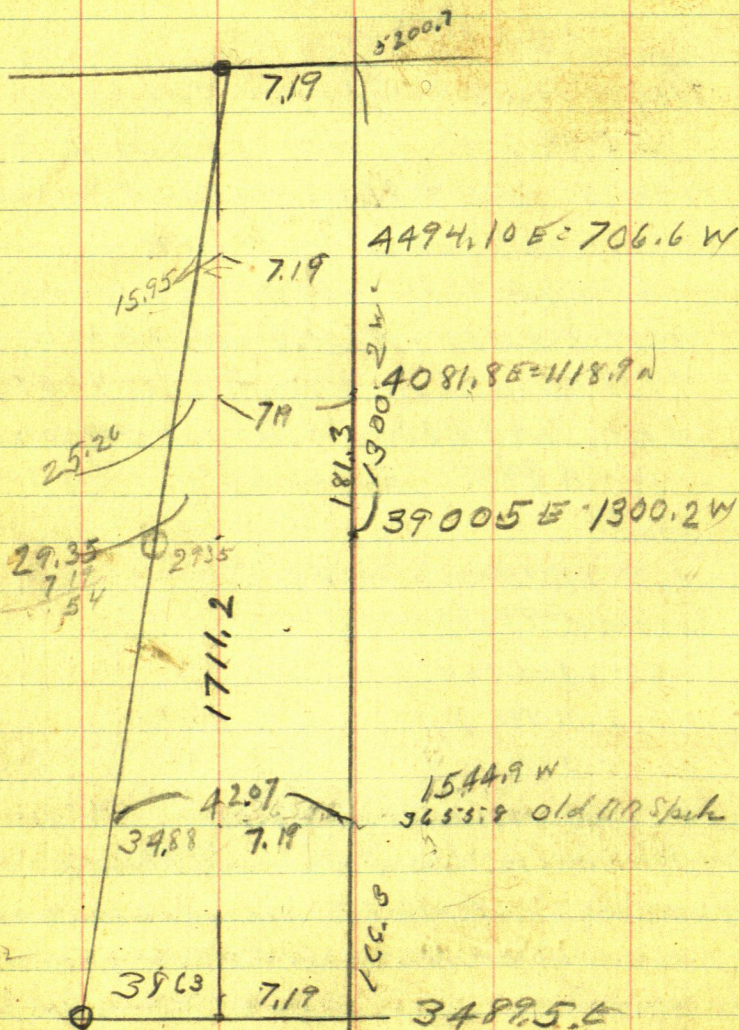 5200.7
7.19
4494.10 E = 706.6 W
7.19
15.95
1300.2 W
4081.8 E = 1118.9 W
7.19
181.3
25.26
3900.5 E - 1300.2 W
29.35
29.35
7.19
54
1711.2
1544.9 W
42.07
3655.8 Old RR Spik
34.88 7.19
38.63 7.19
3489.5 E